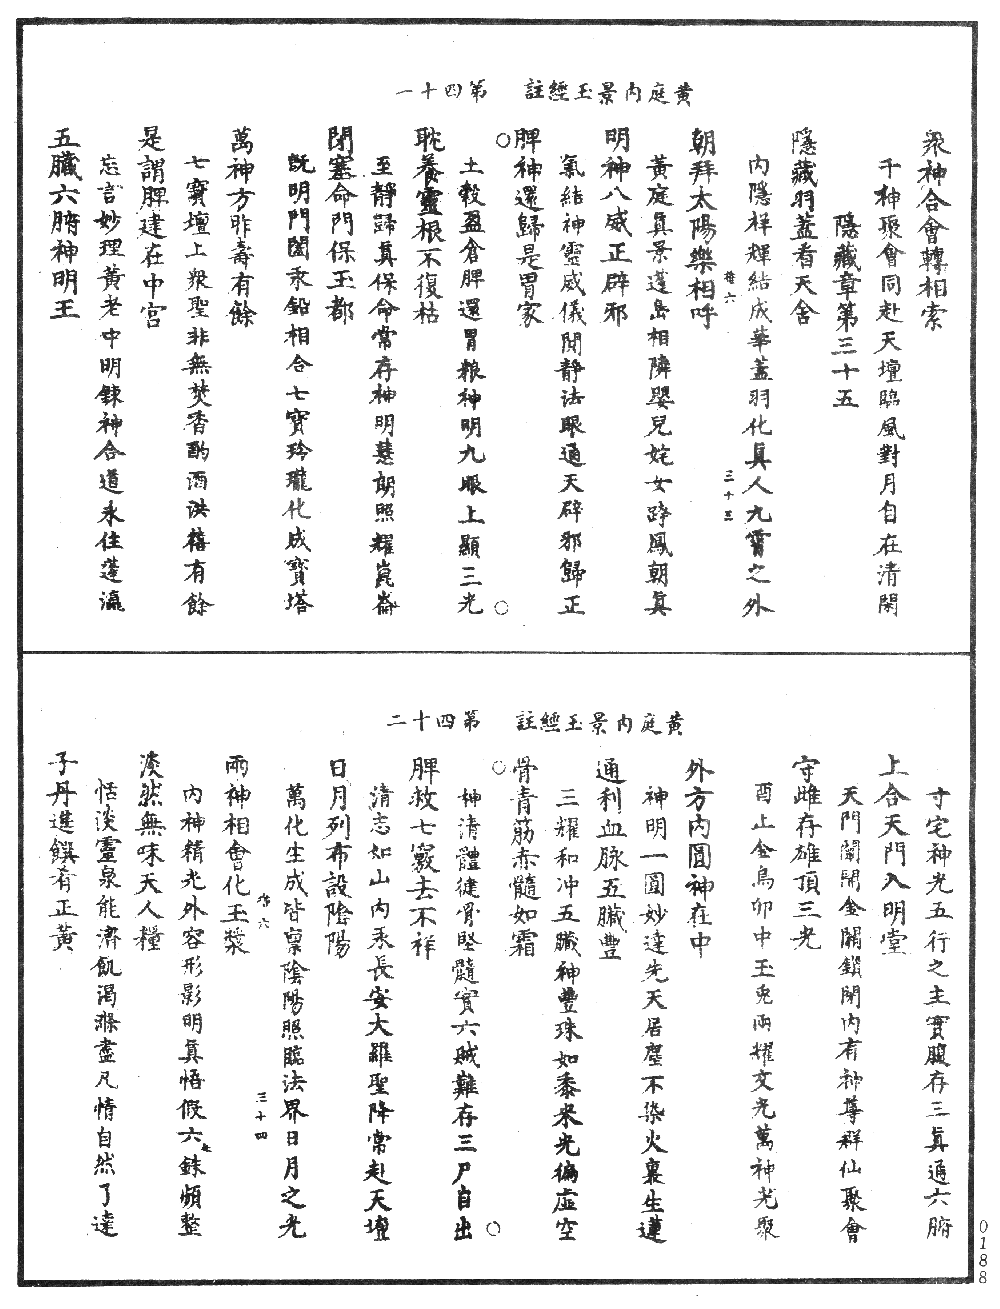 黃庭內景玉經註　第四十一
眾神合會轉相索
千神聚會同赴天壇臨風對月自在清閑
隱藏章第三十五
隱藏羽蓋看天舍
內隱祥輝結成華蓋羽化真人九霄之外
朝拜太陽樂相呼
黃庭真景蓬島相隣嬰兒姹女跨鳳朝真
明神八威正辟邪
氣結神靈威儀閒靜法眼通天辟邪歸正
脾神還歸是胃家
土穀盈倉脾還胃粮神明九眼上顯三光
耽養靈根不復枯
至靜歸真保命常存神明慧朗照耀崑崙
閉塞命門保玉都
既明門闔汞鉛相合七寶玲瓏化成寶塔
萬神方昨壽有餘
七寶壇上眾聖非無焚香酌酒洪禧有餘
是謂脾建在中宮
忘言妙理黃老中明鍊神合道永住蓬瀛
五臟六腑神明王
三十三
黃庭內景玉經註　第四十二
寸宅神光五行之主實腹存三真通六腑
上合天門入明堂
天門闌開金關鎖閉內有神尊群仙聚會
守雌存雄頂三光
酉上金烏卯中玉兎兩耀交光萬神光聚
外方內圓神在中
神明一圓妙達先天居塵不染火裏生蓮
通利血脉五臟豐
三耀和冲五臟神豐珠如黍米光徧虛空
骨青筋赤髓如霜
神清體健骨堅髓實六賊難存三尸自出
脾救七竅去不祥
清志如山內汞長安大羅聖降常赴天壇
日月列布設陰陽
萬化生成皆稟陰陽照臨法界日月之光
兩神相會化玉漿
內神精光外容形影明真悟假六銖頻整
淡然無味天人糧
恬淡靈泉能濟飢渴滌盡凡情自然了達
子丹進饌肴正黃
三十四
0188